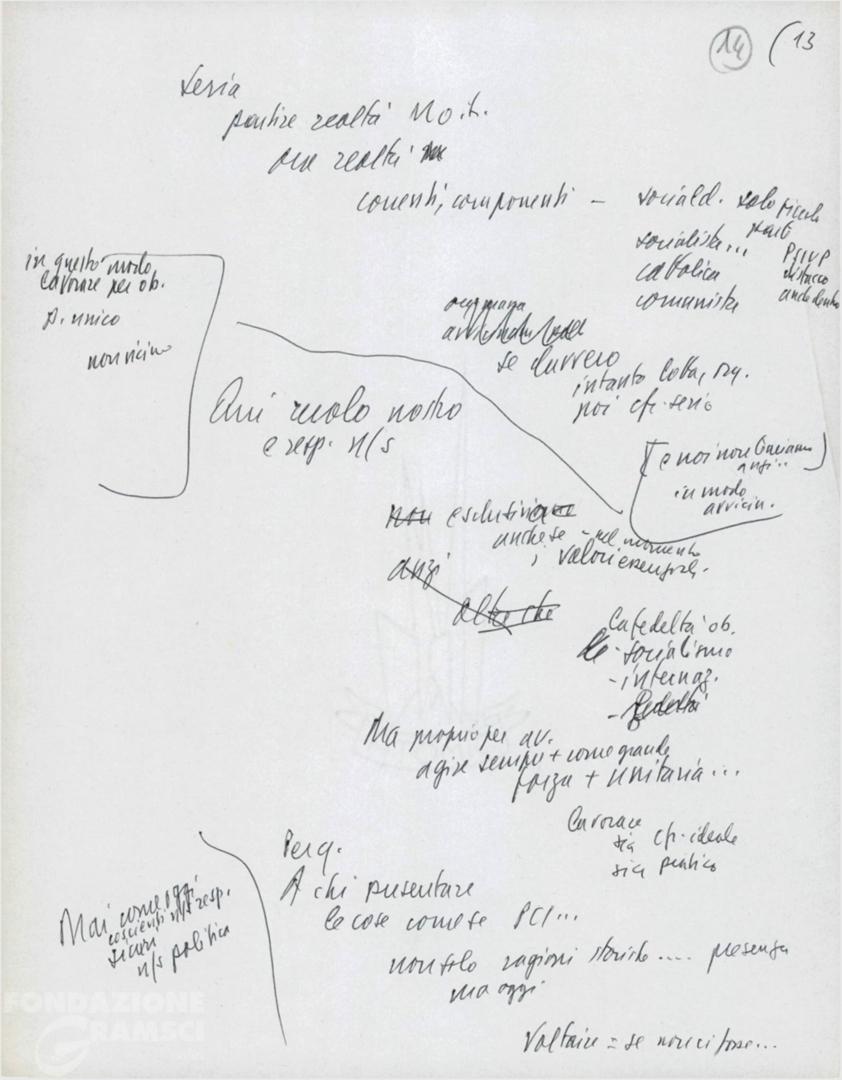 14 (13
seria
partire realtà Mo. it.
ora realtà
correnti, componenti – sociald. solo piccola parte
socialista... PSIUP
cattolica distacco
comunista anche dentro
in questo modo
lavorare per ob.
p. unico
non vicino
se davvero
intanto lotta, org.
poi cfr. serio
Qui ruolo nostro
e resp. n/s
[e noi non lasciamo
anzi..]
in modo
avvicin.
non
anche se - nel momento
; valori essenziali.
anzi
altre che
la fedeltà ob.
- socialismo
- internaz.
- fedeltà
Ma proprio per av.
agire sempre + come grande
forza + unitaria...
Lavorare
sia cfr. ideale
sia pratico
Per q.
A chi presentare
le cose come se PCI...
non solo ragioni storiche .... presenza
ma oggi
Mai come oggi
coscienti n/s resp.
sicuri
n/s politica
Voltaire = se non ci fosse...
FONDAZIONE
GRAMSCI